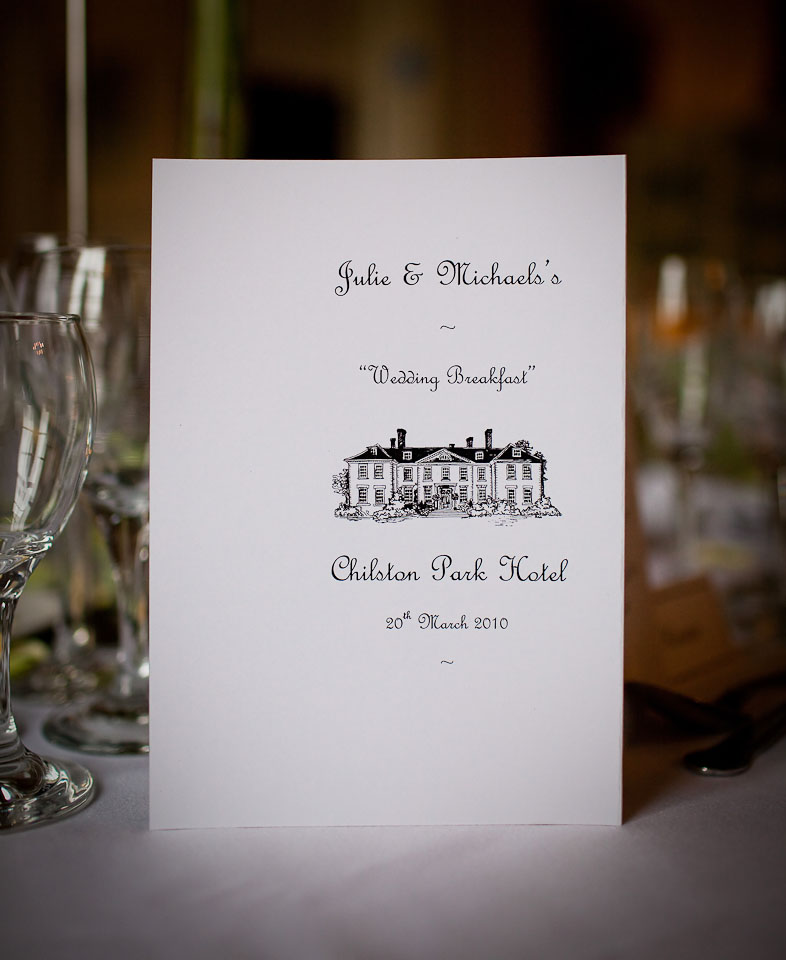 Julie & Michaels's
~
“Wedding Breakfast”
Chilston Park Hotel
20th March 2010
~